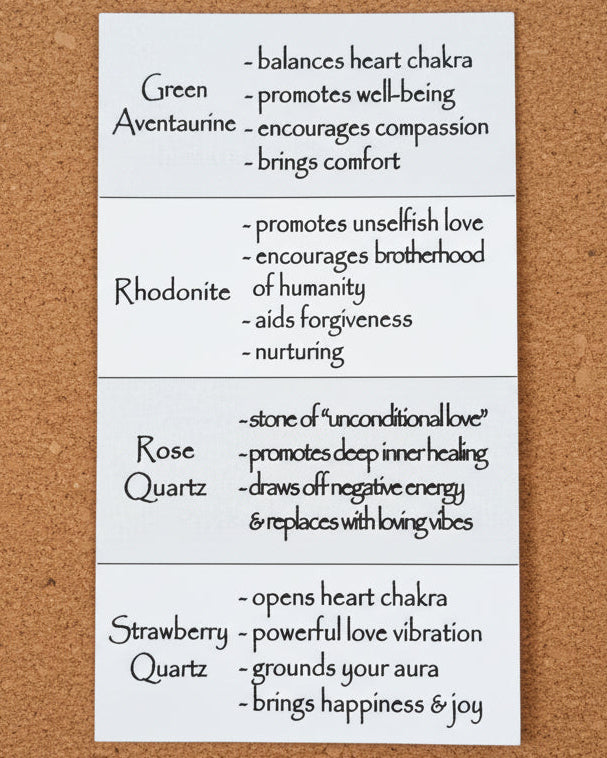 Green
Aventaurine
- balances heart chakra
- promotes well-being
- encourages compassion
- brings comfort
Rhodonite
- promotes unselfish love
- encourages brotherhood
of humanity
- aids forgiveness
- nurturing
Rose
Quartz
- stone of "unconditional love"
- promotes deep inner healing
- draws off negative energy
& replaces with loving vibes
Strawberry
Quartz
- opens heart chakra
- powerful love vibration
- grounds your aura
- brings happiness & joy